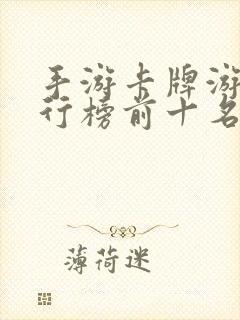 手游卡牌游
行榜前十名
薄荷迷